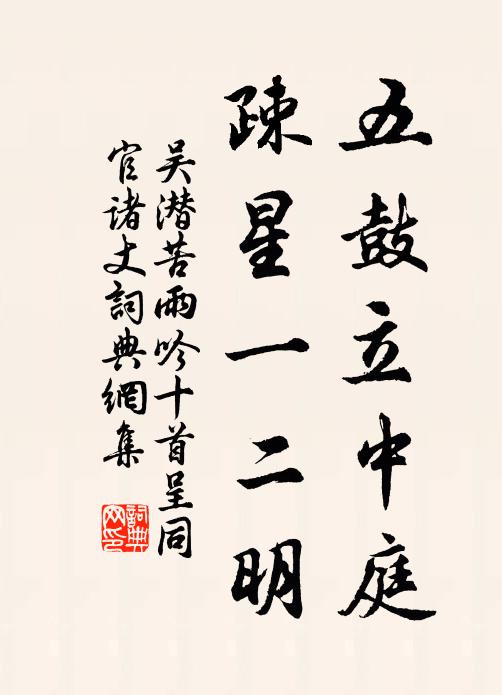 五鼓立中庭
疎星一二明
吴潜苦雨吟十首呈同
官诸丈詞典網集
詞典
网印